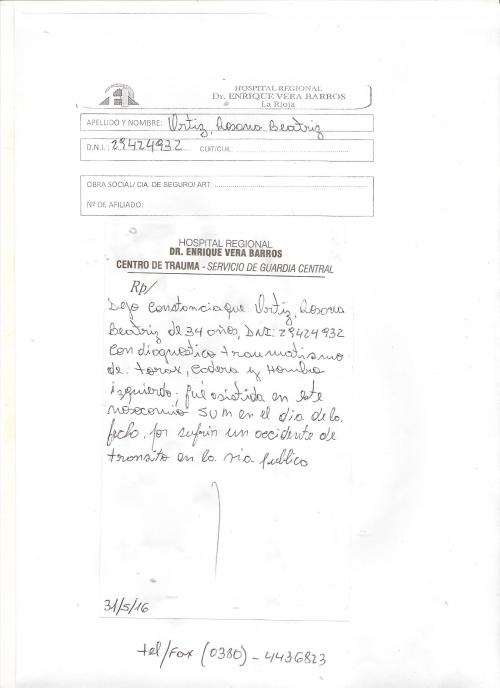 HOSPITAL REGIONAL
Dr. ENRIQUE VERA BARROS
La Rioja
APELLIDO Y NOMBRE: Ortiz, Rosana Beatriz
D.N.I.: 29424932 CUIT/CUIL:
OBRA SOCIAL/ CIA. DE SEGURO/ ART:
Nº DE AFILIADO:
HOSPITAL REGIONAL
DR. ENRIQUE VERA BARROS
CENTRO DE TRAUMA - SERVICIO DE GUARDIA CENTRAL
Rp/
Dejo constancia que Ortiz, Rosana
Beatriz de 34 años, DNI: 29424932
con diagnostico traumatismo
de: torax, cadera y hombro
izquierdo; fué asistida en este
nosocomio SUM en el dia de la
fecha, por sufrir un accidente de
transito en la via publica
31/5/16
tel/Fax (0380) - 4436823